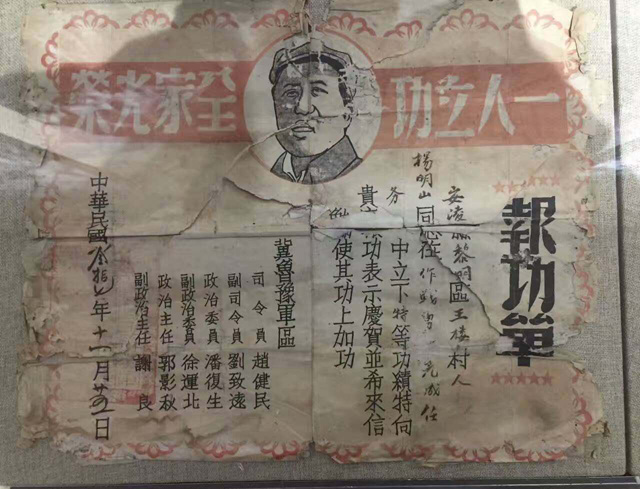 一人立功 全家光榮
報功單
安陵縣黎明區王楼村人
楊明山同志在作战勇 完成任
务 中立下特等功績特向
貴 功表示慶賀並希來信
使其功上加功
冀魯豫軍區
司令員 趙健民
副司令員 劉致遠
政治委員 潘復生
副政治委員 徐運北
政治主任 郭影秋
副政治主任 謝良
中華民國叁拾七年十一月 日